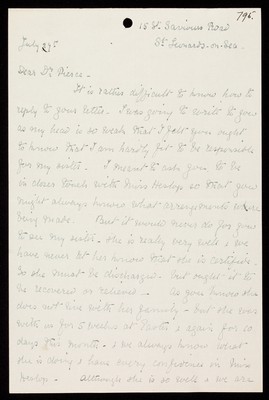 795.
15 St. Saviours Road
St Leonards-on-Sea.
July 27th
Dear Dr Pierce -
It is rather difficult to know how to
reply to your letter. I was going to write to you
as my head is so weak that I felt you ought
to know that I am hardly fit to be responsible
for my sister. I meant to ask you to be
in close touch with Miss so that you
might always know what arrangements were
being made. But it would never do for you
to see my sister - she is really very well, & we
have never let her know that she is certified.
So she must be discharged - but ought it to
be recovered or relieved - As you know she
does not live with her family - but she was
with us for 5 weeks at & again for 10
days this month - & we always know what
she is doing & have every confidence in Miss
Although she is so well & we are